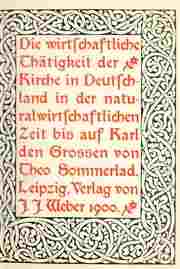 Die wirtschaftliche
Thätigkeit der
Kirche in Deutsch-
land in der natu-
ralwirtschaftlichen
Zeit bis auf Karl
den Grossen von
Theo Sommerlad.
Leipzig, Verlag von
J. J. Weber 1900.